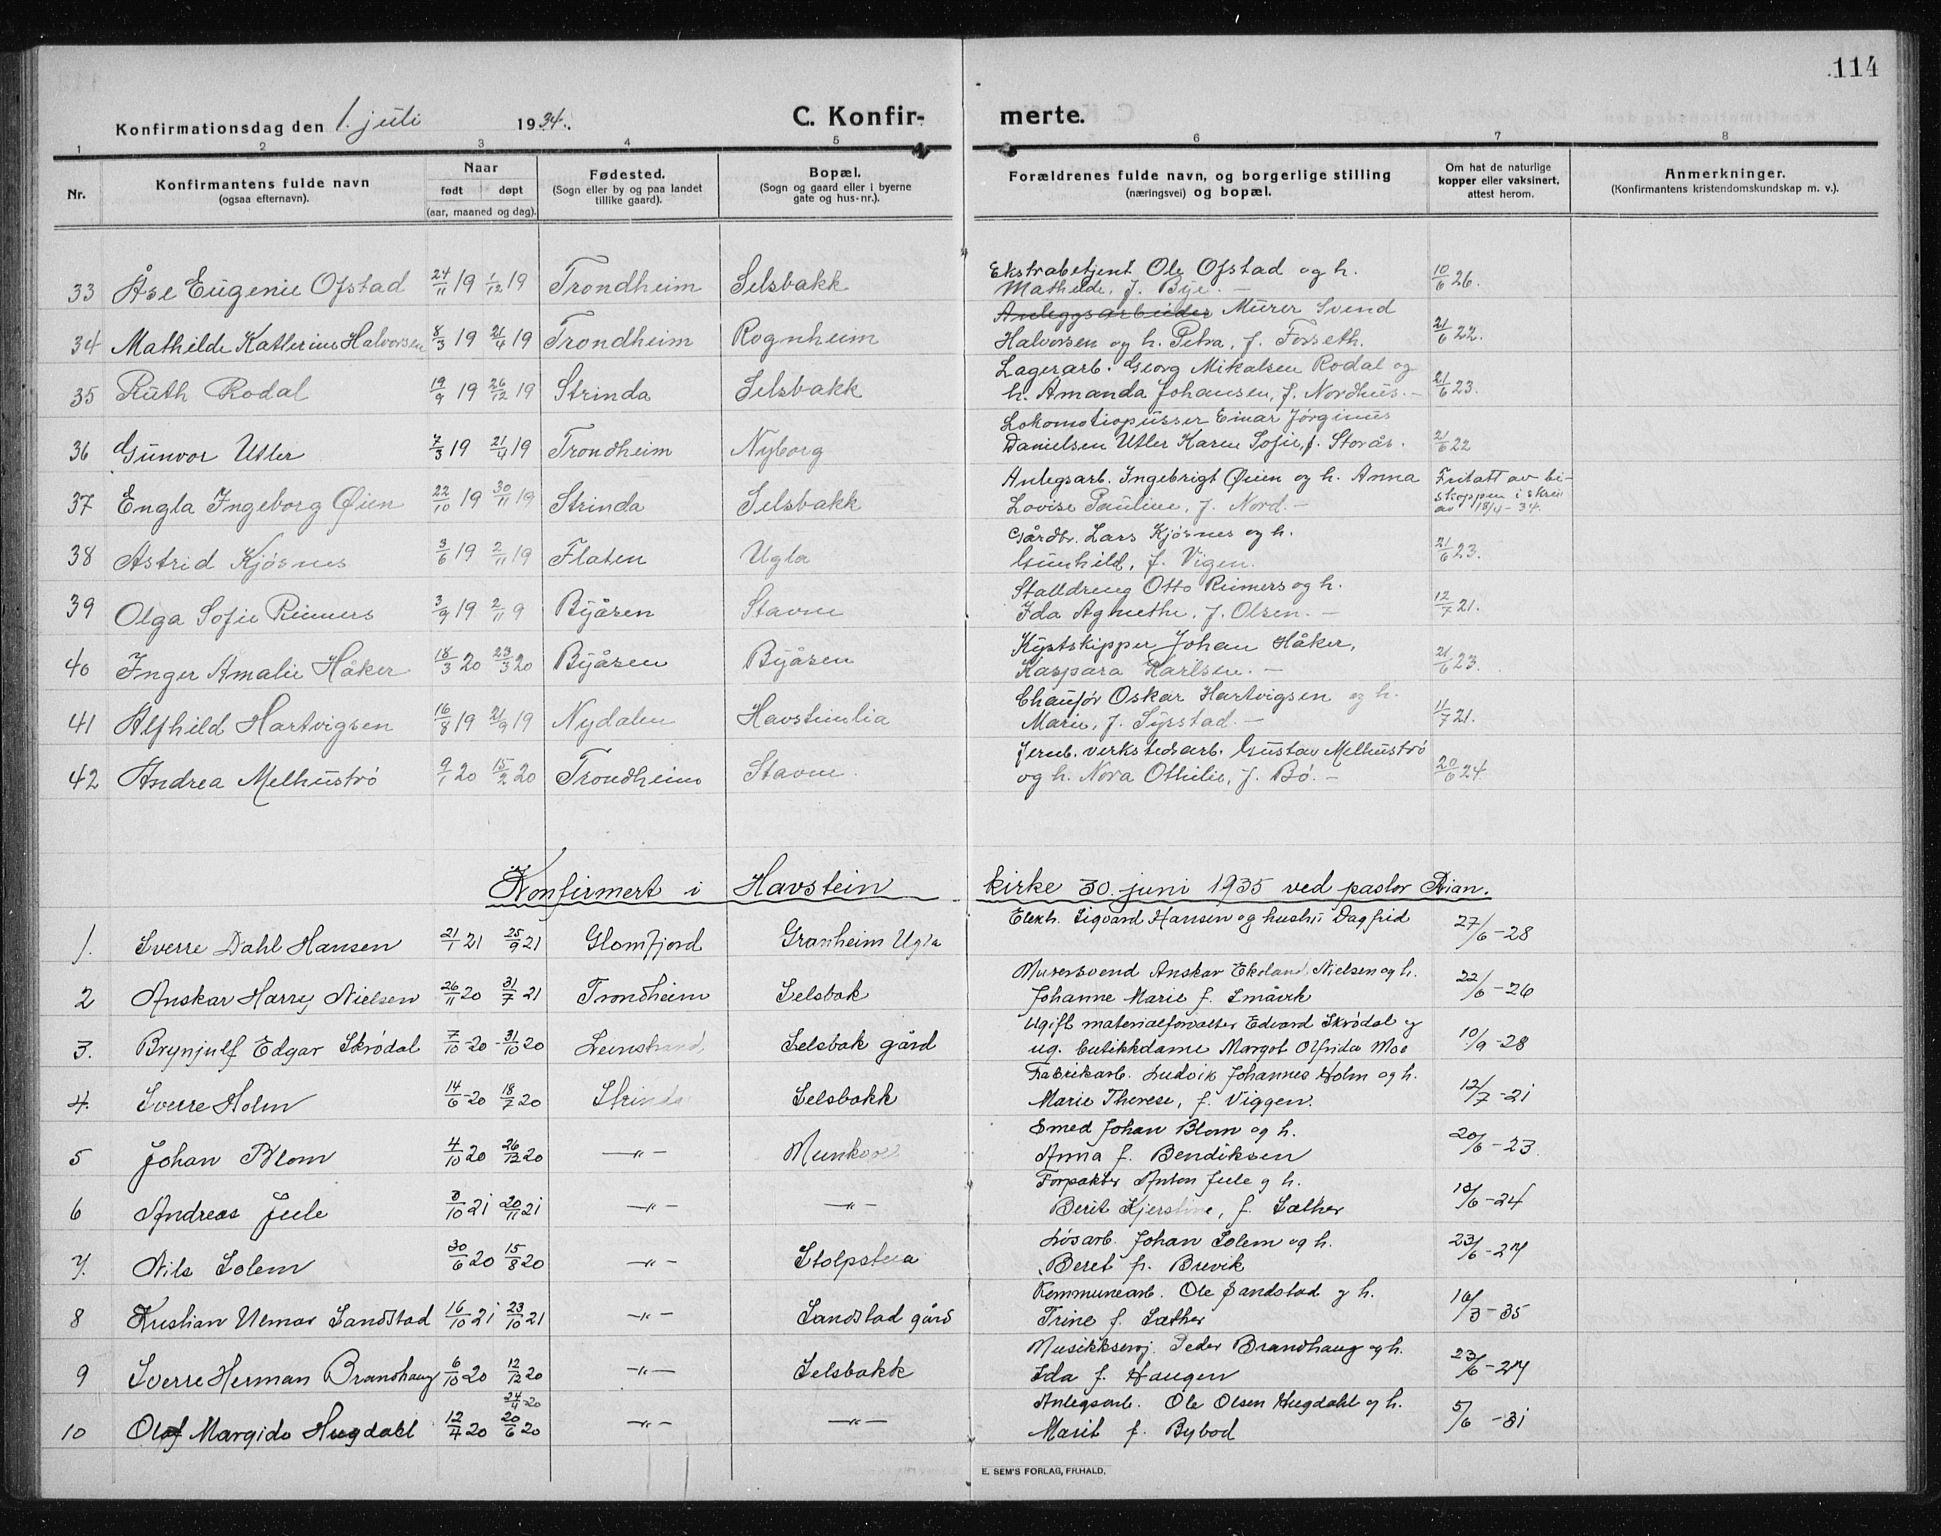 114
Konfirmationsdag den 1. juli 1934. C. Konfir- merte.
1 2 3 4 5 6 7 8
Nr. Konfirmantens fulde navn (ogsaa efternavn). Naar født døpt (aar, maaned og dag). Fødested. (Sogn eller by og paa landet tillike gaard). Bopæl. (Sogn og gaard eller i byerne gate og hus-nr.). Forældrenes fulde navn, og borgerlige stilling (næringsvei) og bopæl. Om hat de naturlige kopper eller vaksinert, attest herom. Anmerkninger. (Konfirmantens kristendomskundskap m. v.).
33 Åse Eugenie Ofstad 24/11 19 1/12 19 Trondheim Selsbakk Ekstrabetjent Ole Ofstad og h. 10/6 26.
Mathilde, f. Bye. —
34 Mathilde Katherine Halvorsen 8/3 19 21/4 19 Trondheim Rognheim Anleggsarbeider Murer Svend 21/6 22.
Halvorsen og h. Petra, f. Forseth.
35 Ruth Rodal 19/9 19 26/12 19 Strinda Selsbakk Lagerarb. Georg Mikalsen Rodal og 21/6 23.
h. Amanda Johansen, f. Nordhus. —
36 Gunvor Utler 7/3 19 21/4 19 Trondheim Nyborg Lokomotivpusser Einar Jørginus 21/6 22
Danielsen Utler Karen Sofie, f. Storås.
37 Engla Ingeborg Øien 22/10 19 30/11 19 Strinda Selsbakk Anlegsarb. Ingebrigt Øien og h. Anna Fritatt av bi-
Lovise Pauline, f. Nord. — skoppen i skriv av 18/4 - 34.
38 Astrid Kjøsnes 3/6 19 2/11 19 Flaten Ugla Gårdbr. Lars Kjøsnes og h. 21/6 23.
Gunhild, f. Vigen.
39 Olga Sofie Reimers 3/9 19 2/11 9 Byåsen Stavne Stalldreng Otto Reimers og h. 12/7 21.
Ida Agnethe, f. Olsen. —
40 Inger Amalie Håker 18/3 20 23/3 20 Byåsen Byåsen Kystskipper Johan Håker, 21/6 23.
Kaspara Karlsen. —
41 Alfhild Hartvigsen 16/8 19 21/9 19 Nydalen Havsteinlia Chaufør Oskar Hartvigsen og h. 11/7 21.
Marie, f. Syrstad. —
42 Andrea Melhustrø 9/1 20 15/2 20 Trondheim Stavne Jernb. verkstedsarb. Gustav Melhustrø 20/6 24.
og h. Nora Othilie, f. Bø. —
Konfirmert i Havstein kirke 30. juni 1935 ved pastor Rian.
1. Sverre Dahl Hansen 21/1 21 25/9 21 Glomfjord Granheim Ugla Elekh. Sigvard Hansen og hustr. Dagfrid 27/6 - 28
2 Anskar Harry Nielsen 26/11 20 31/7 21 Trondheim Selsbak Murersvend Anskar Ekeland Nielsen og h. 22/6 - 26
Johanne Marie f. Småvik
3. Brynjulf Edgar Skrødal 7/10 - 20 - 31/10 20 Leinstrand Selsbak gård Ugift materialforvalter Edvard Skrødal og 10/9 - 28
ug. butikkdame Margot Olfrida Moe
4. Sverre Holm 14/6 - 20 18/7 20 Strinda Selsbakk Fabrikarb. Ludvik Johannes Holm og h. 12/7 - 21
Marie Therese, f. Viggen.
5 Johan Blom 4/10 20 26/12 20 —„— Munkvol Smed Johan Blom og h. 20/6 - 23
Anna f. Bendiksen
6 Andreas Jule 3/10 21 20/11 21 —„— —„— Forpakter Anton Jule og h. 13/6 - 24
Berit Kjerstine, f. Sæther
7. Nils Solem 30/6 20 15/8 20 —„— Stolpsteia Løsarb. Johan Solem og h. 23/6 - 27
Beret f. Brevik
8 Kristian Ulmar Sandstad 16/10 21 23/10 21 —„— Sandstad gård Kommunearb. Ole Sandstad og h. 16/3 - 35
Trine f. Sæther
9 Sverre Herman Brandhaug 6/10 20 12/12 20 —„— Selsbakk Musikkserj. Peder Brandhaug og h. 23/6 - 27
Ida f. Haugen
24/4 - 20
10 Olaf Margido Hugdahl 12/4 20 20/6 20 —„— —„— Anlegsarb. Ole Olsen Hugdahl og h. 5/6 - 31
Marit f. Bybod
E. SEM'S FORLAG, FR.HALD.